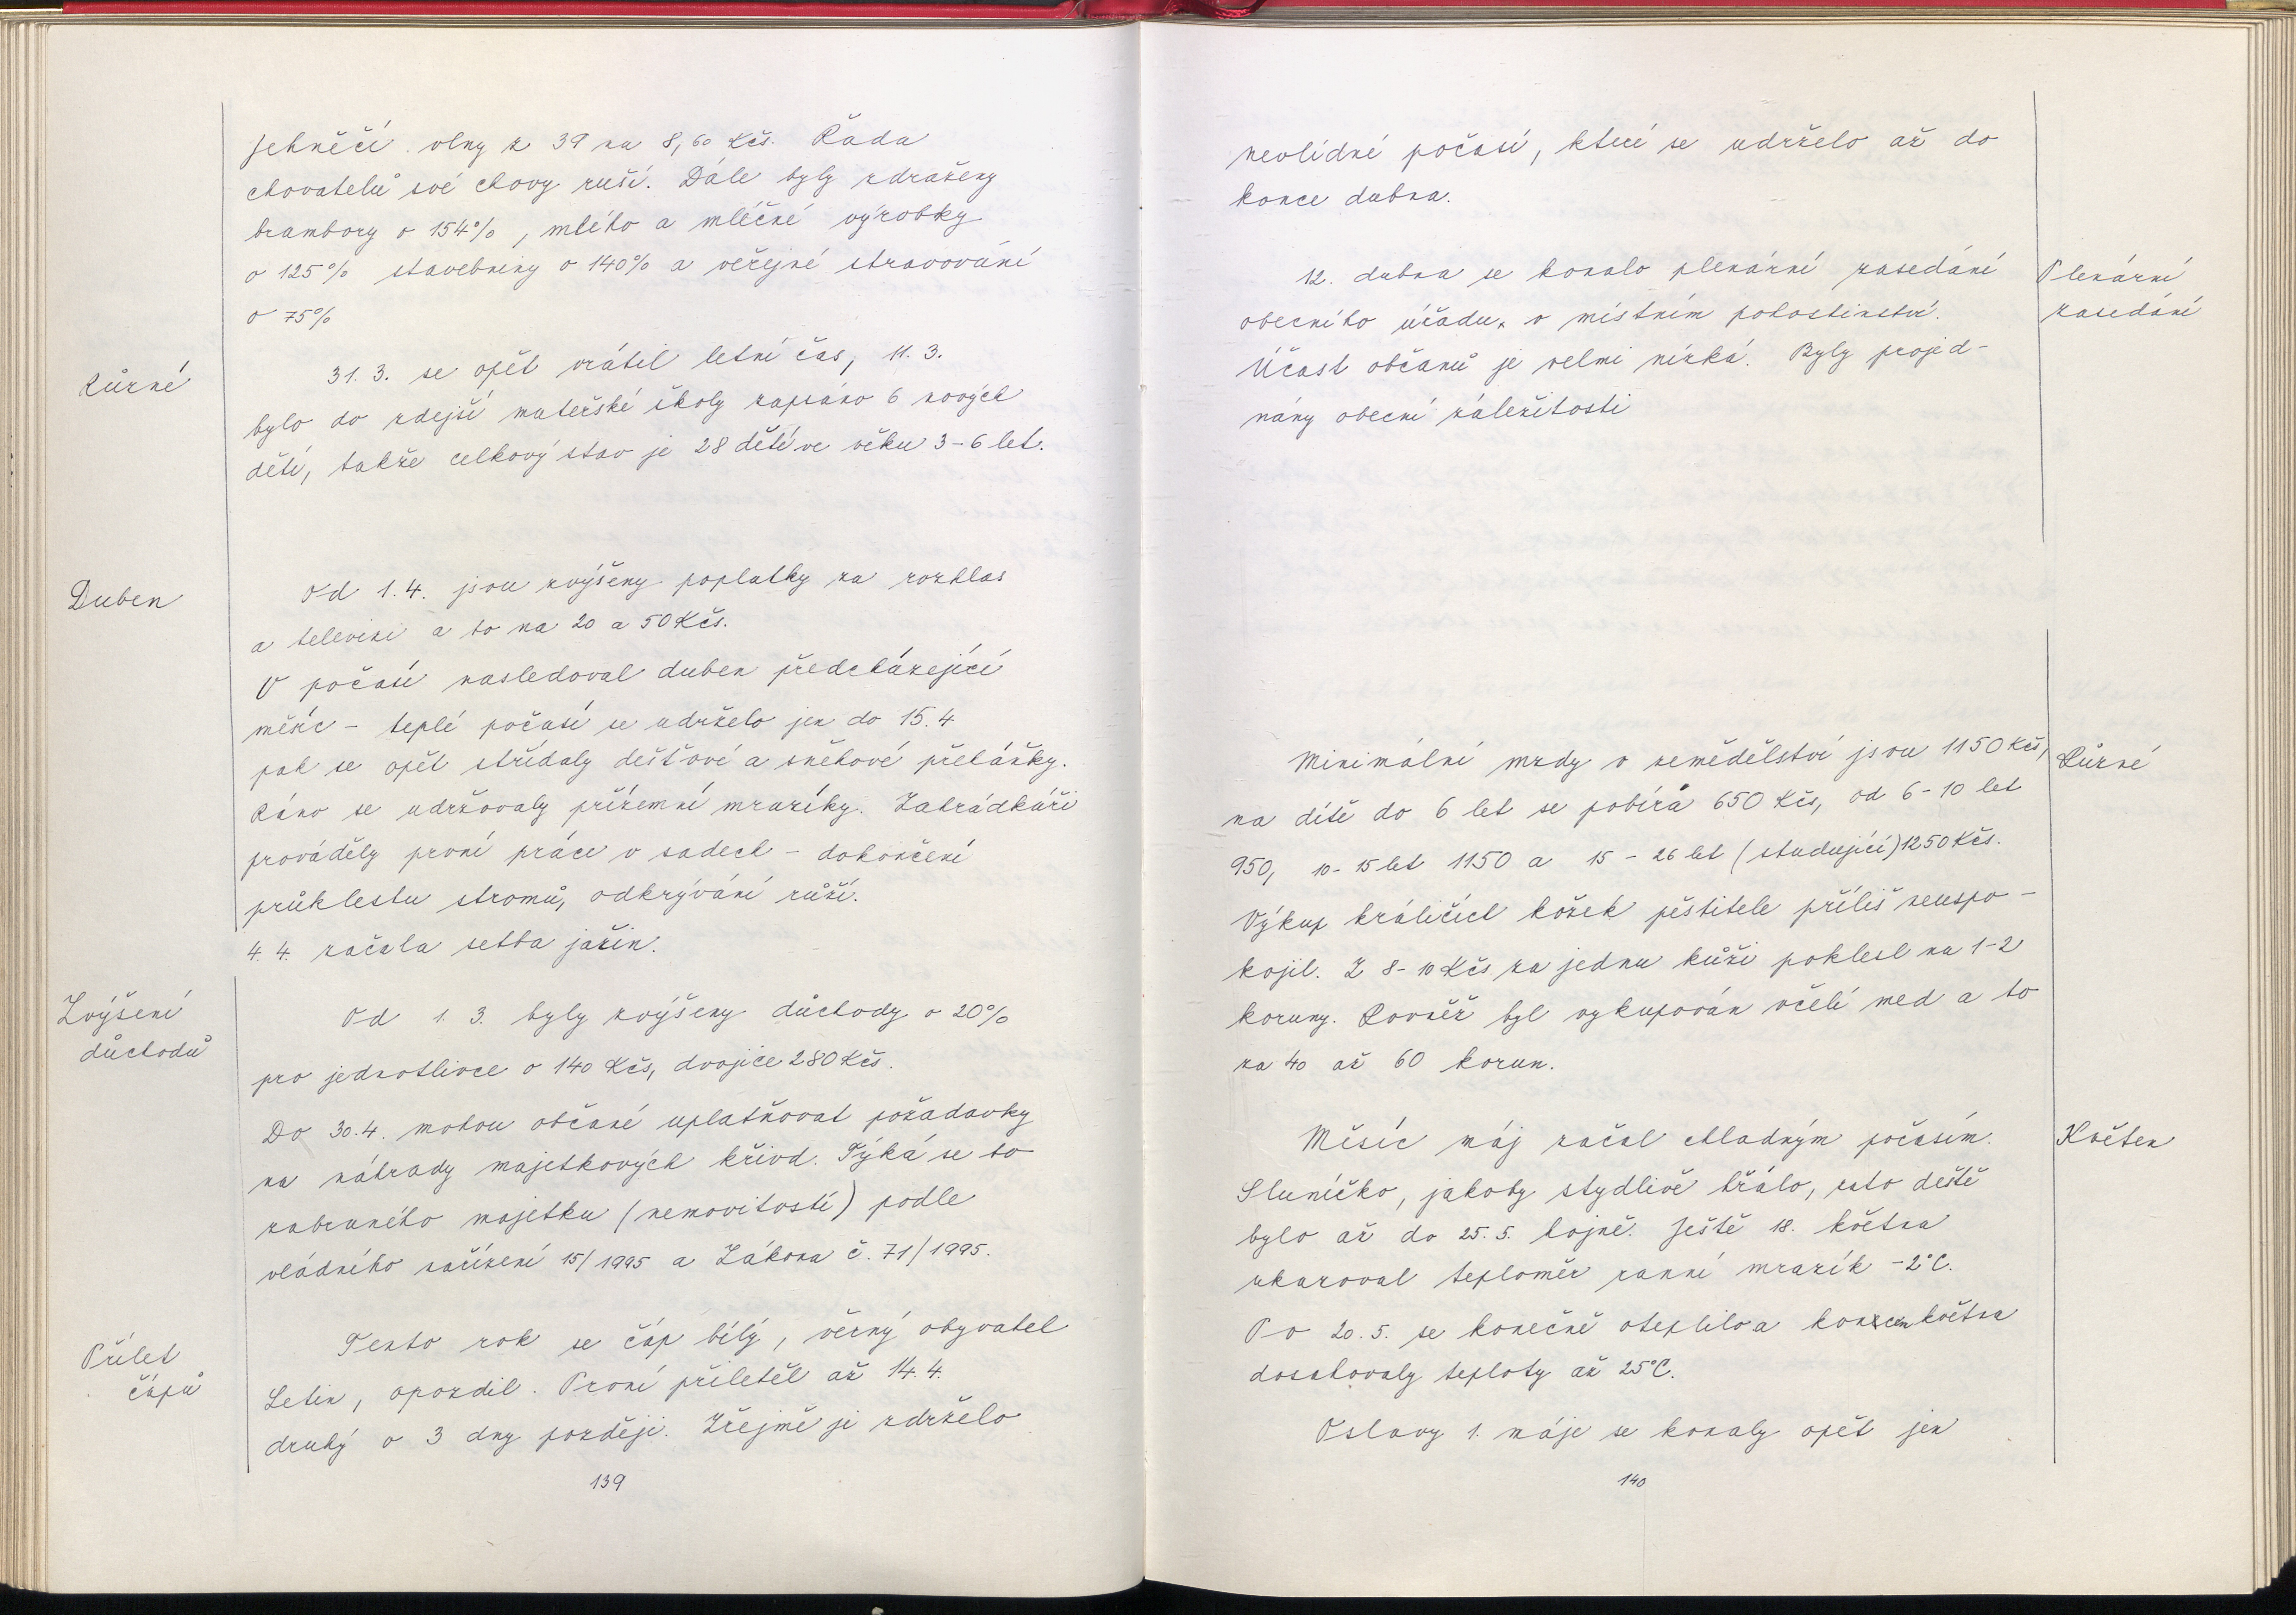 jehněčí vlny z 39 na 8,60 Kčs. Řada
chovatelů své chovy ruší. Dále byly zdraženy
brambory o 154%, mléko a mléčné výrobky
o 125% stavebniny o 140% a veřejné stravování
o 75%
Různé
31. 3. se opět vrátil letní čas, 11. 3.
bylo do zdejší mateřské školy zapsáno 6 nových
dětí, takže celkový stav je 28 dětí ve věku 3-6 let.
Duben
Od 1.4. jsou zvýšeny poplatky za rozhlas
a televizi a to na 20 a 50 Kčs.
V počasí nasledoval duben předcházející
měsíc - teplé počasí se udrželo jen do 15.4
pak se opět střídaly dešťové a sněhové přeháňky.
Ráno se udržovaly přízemní mrazíky. Zahrádkáři
prováděly první práce v sadech - dokončení
průklestu stromů, odkrývání růží.
4. 4. začala setba jařin.
Zvýšení
důchodů
Od 1. 3. byly zvýšeny důchody o 20%
pro jednotlivce o 140 Kčs, dvojice 280 Kčs.
Do 30.4. mohou občané uplatňovat požadavky
na náhrady majetkových křivd. Týká se to
zabraného majetku (nemovitostí) podle
vládního nařízení 15/1995 a Zákona č. 71/1995.
Přílet
čápů
Tento rok se čáp bílý, věrný obyvatel
Letin, opozdil. První přiletěl až 14.4.
druhý o 3 dny později. Zřejmě je zdrželo
139
nevlídné počasí, které se udrželo až do
konce dubna.
12. dubna se konalo plenární zasedání
obecního úřadu, v místním pohostinství.
Účast občanů je velmi nízká. Byly projed-
nány obecní záležitosti
Plenární
zasedání
Minimální mzdy v zemědělství jsou 1150 Kčs,
na dítě do 6 let se pobírá 650 Kčs, od 6-10 let
950, 10-15 let 1150 a 15-26 let (studující) 1250 Kčs.
Výkup králičích kožek pěstitele příliš neuspo-
kojil. Z 8-10 Kčs za jednu kůži poklesl na 1-2
koruny. Rovněž byl vykupován včelí med a to
za 40 až 60 korun.
Různé
Měsíc máj začal chladným počasím.
Sluníčko, jakoby stydlivě hřálo, zato deště
bylo až do 25.5. hojně. Ještě 18. května
ukazoval teploměr ranní mrazík -2°C.
Po 20.5. se konečně oteplilo a koncem května
dosahovaly teploty až 25°C.
Květen
Oslavy 1. máje se konaly opět jen
140